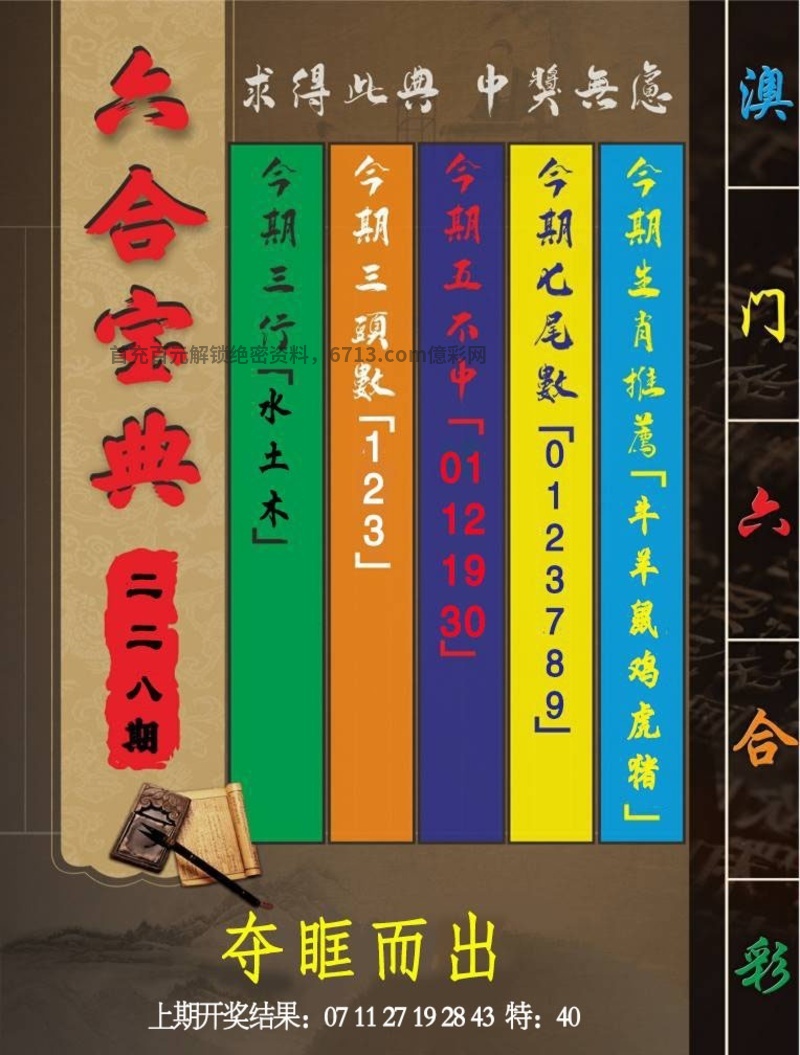 六合宝典
二二八期
求得此典 中獎無慮
今期三行「水土木」
今期三頭數「123」
今期五不中「01 12 19 30」
今期七尾數「0123789」
今期生肖推薦「牛羊鼠鸡虎猪」
首充百元解锁绝密资料，6713.com億彩网
澳门六合彩
夺眶而出
上期开奖结果：07 11 27 19 28 43 特：40